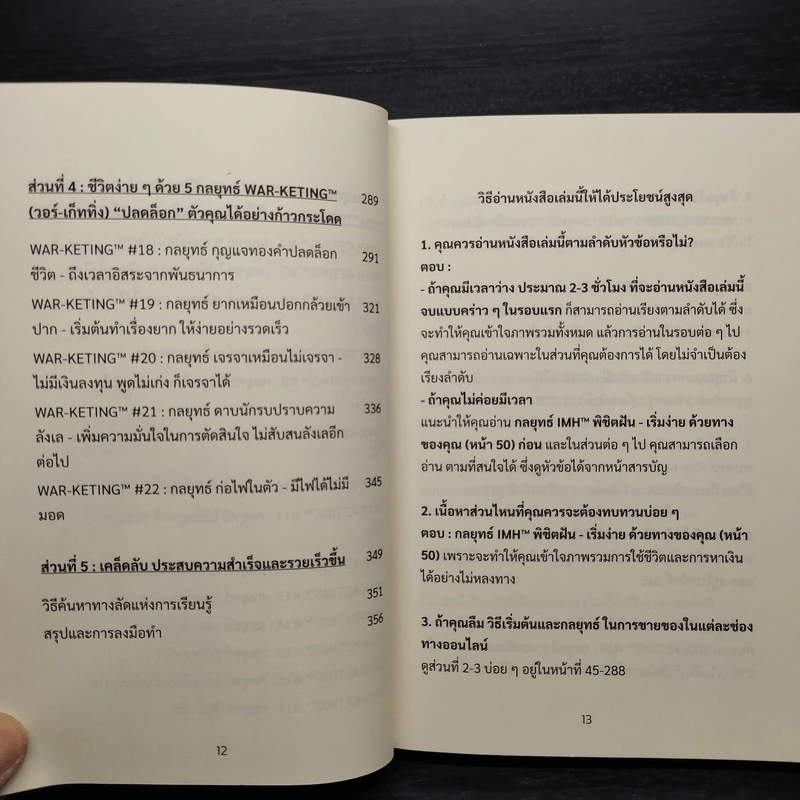 ส่วนที่ 4 : ชีวิตง่าย ๆ ด้วย 5 กลยุทธ์ WAR-KETING™ 289
(วอร์-เก็ททิ่ง) “ปลดล็อก” ตัวคุณได้อย่างก้าวกระโดด
WAR-KETING™ #18 : กลยุทธ์ กุญแจทองคำปลดล็อก 291
ชีวิต - ถึงเวลาอิสระจากพันธนาการ
WAR-KETING™ #19 : กลยุทธ์ ยากเหมือนปอกกล้วยเข้า 321
ปาก - เริ่มต้นทำเรื่องยาก ให้ง่ายอย่างรวดเร็ว
WAR-KETING™ #20 : กลยุทธ์ เจรจาเหมือนไม่เจรจา - 328
ไม่มีเงินลงทุน พูดไม่เก่ง ก็เจรจาได้
WAR-KETING™ #21 : กลยุทธ์ ดาบนักรบปราบความ 336
ลังเล - เพิ่มความมั่นใจในการตัดสินใจ ไม่สับสนลังเลอีก
ต่อไป
WAR-KETING™ #22 : กลยุทธ์ ก่อไฟในตัว - มีไฟได้ไม่มี 345
มอด
ส่วนที่ 5 : เคล็ดลับ ประสบความสำเร็จและรวยเร็วขึ้น 349
วิธีค้นหาทางลัดแห่งการเรียนรู้ 351
สรุปและการลงมือทำ 356
12
วิธีอ่านหนังสือเล่มนี้ให้ได้ประโยชน์สูงสุด
1. คุณควรอ่านหนังสือเล่มนี้ตามลำดับหัวข้อหรือไม่?
ตอบ :
- ถ้าคุณมีเวลาว่าง ประมาณ 2-3 ชั่วโมง ที่จะอ่านหนังสือเล่มนี้
จบแบบคร่าว ๆ ในรอบแรก ก็สามารถอ่านเรียงตามลำดับได้ ซึ่ง
จะทำให้คุณเข้าใจภาพรวมทั้งหมด แล้วการอ่านในรอบต่อ ๆ ไป
คุณสามารถอ่านเฉพาะในส่วนที่คุณต้องการได้ โดยไม่จำเป็นต้อง
เรียงลำดับ
- ถ้าคุณไม่ค่อยมีเวลา
แนะนำให้คุณอ่าน กลยุทธ์ IMH™ พิชิตฝัน - เริ่มง่าย ด้วยทาง
ของคุณ (หน้า 50) ก่อน และในส่วนต่อ ๆ ไป คุณสามารถเลือก
อ่าน ตามที่สนใจได้ ซึ่งดูหัวข้อได้จากหน้าสารบัญ
2. เนื้อหาส่วนไหนที่คุณควรจะต้องทบทวนบ่อย ๆ
ตอบ : กลยุทธ์ IMH™ พิชิตฝัน - เริ่มง่าย ด้วยทางของคุณ (หน้า
50) เพราะจะทำให้คุณเข้าใจภาพรวมการใช้ชีวิตและการหาเงิน
ได้อย่างไม่หลงทาง
3. ถ้าคุณลืม วิธีเริ่มต้นและกลยุทธ์ ในการขายของในแต่ละช่อง
ทางออนไลน์
ดูส่วนที่ 2-3 บ่อย ๆ อยู่ในหน้าที่ 45-288
13